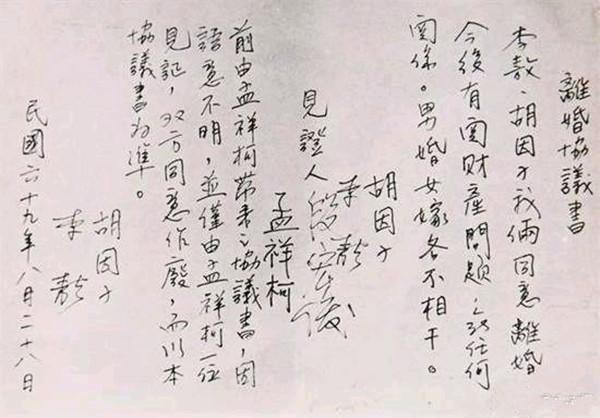 離婚協議書
李敖、胡因子我倆同意離婚
今後有関財產問題任何
関係。男婚女嫁各不相干。
胡因子
李敖
見證人 段宏俊
孟祥柯
前由孟祥柯帶來之協議書，因
語意不明，並僅由孟祥柯一位
見証，双方同意作廢，而以本
協議書為準。
胡因子
李敖
民國六十九年八月二十八日